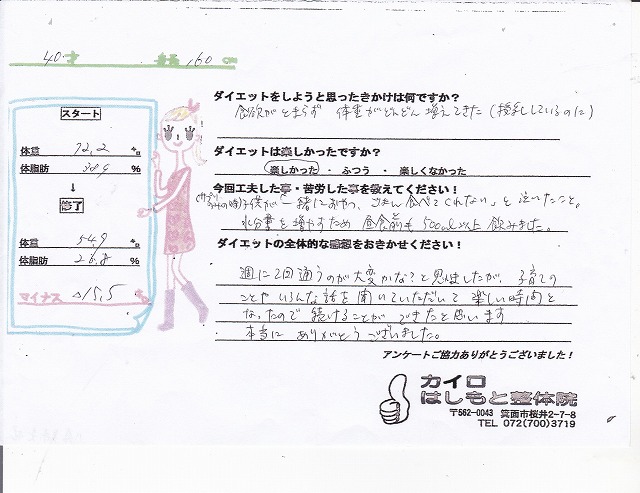 40才 身長 160 cm
スタート
体重 72.2 kg
体脂肪 38.9 %
↓
終了
体重 54.9 kg
体脂肪 26.8 %
マイナス △15.5
ダイエットをしようと思ったきかけは何ですか?
食欲がとまらず 体重がどんどん増えてきた(授乳しているのに)
ダイエットは楽しかったですか?
楽しかった ・ ふつう ・ 楽しくなかった
今回工夫した事・苦労した事を教えてください!
子供が「一緒におやつ、ごはん食べてくれない」と泣いたこと。
水分量を増やすため 昼食前も500ml以上飲みました。
ダイエットの全体的な感想をおきかせください!
週に2回通うのが大変かな?と思いましたが、子育ての
ことやいろんな話を聞いていただいて楽しい時間と
なったので続けることができたと思います
本当に ありがとうございました。
アンケートご協力ありがとうございました!
カイロ
はしもと整体院
〒562-0043 箕面市桜井2-7-8
TEL 072(700)3719